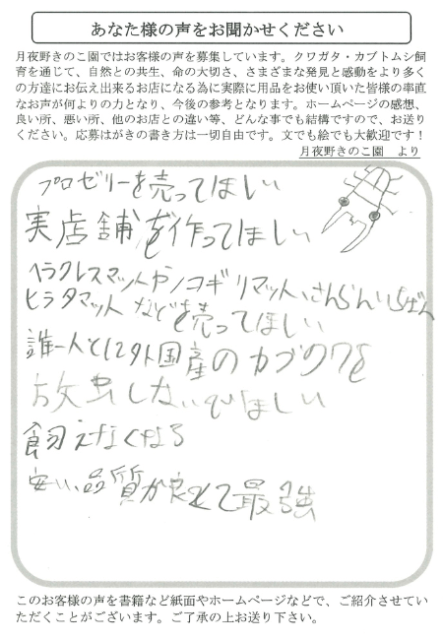 あなた様の声をお聞かせください
月夜野きのこ園ではお客様の声を募集しています。クワガタ・カブトムシ飼
育を通じて、自然との共生、命の大切さ、さまざまな発見と感動をより多く
の方達にお伝え出来るお店になる為に実際に用品をお使い頂いた皆様の率直
なお声が何よりの力となり、今後の参考となります。ホームページの感想、
良い所、悪い所、他のお店との違い等、どんな事でも結構ですので、お送り
ください。応募はがきの書き方は一切自由です。文でも絵でも大歓迎です！
月夜野きのこ園 より
プロゼリーを売ってほしい
実店舗を作ってほしい
ヘラクレスマットやノコギリマット、さんらんいちばん
ヒラタマットなどを売ってほしい
誰一人として外国産のカブクワを
放虫しないでほしい
飼えなくなる
安い、品質が良くて最強
このお客様の声を書籍など紙面やホームページなどで、ご紹介させてい
ただくことがございます。ご了承の上お送り下さい。